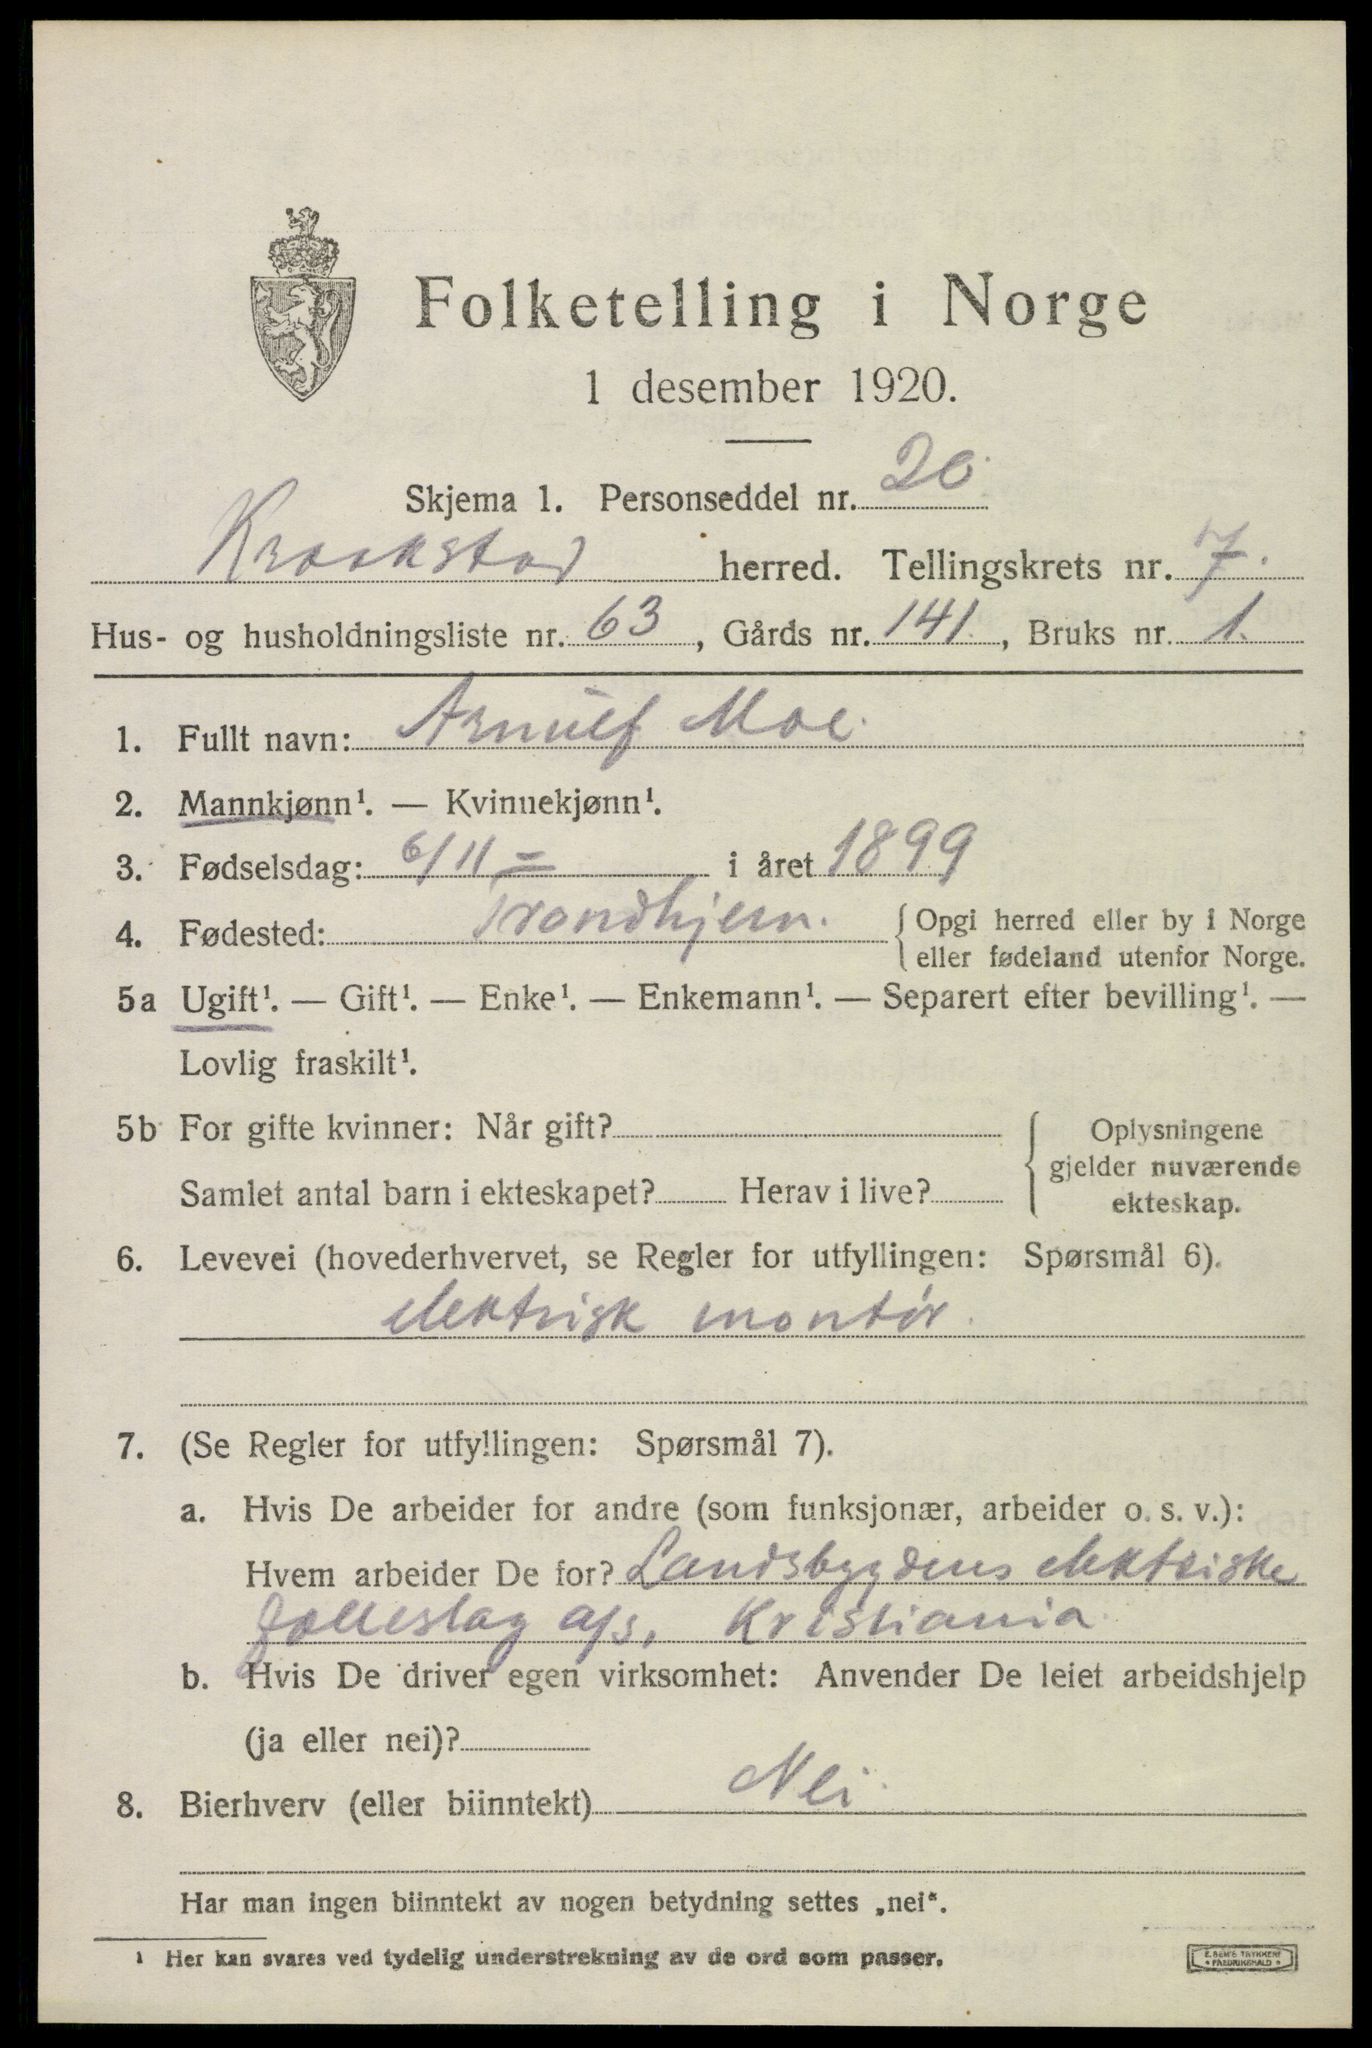 Folketelling i Norge
1 desember 1920.
Skjema 1. Personseddel nr. 20
Kraakstad herred. Tellingskrets nr. 7.
Hus- og husholdningsliste nr. 63, Gårds nr. 141, Bruks nr. 1.
1. Fullt navn: Arnulf Moe.
2. Mannkjønn¹. — Kvinnekjønn¹.
3. Fødselsdag: 6/11 = i året 1899
4. Fødested: Trondhjem. { Opgi herred eller by i Norge
eller fødeland utenfor Norge.
5a Ugift¹. — Gift¹. — Enke¹. — Enkemann¹. — Separert efter bevilling¹. —
Lovlig fraskilt¹.
5b For gifte kvinner: Når gift? { Oplysningene
gjelder nuværende
Samlet antal barn i ekteskapet? Herav i live? ekteskap.
6. Levevei (hovederhvervet, se Regler for utfyllingen: Spørsmål 6).
elektrisk montør.
7. (Se Regler for utfyllingen: Spørsmål 7).
a. Hvis De arbeider for andre (som funksjonær, arbeider o. s. v.):
Hvem arbeider De for? Landsbygdens elektriske
felleslag a/s, Kristiania.
b. Hvis De driver egen virksomhet: Anvender De leiet arbeidshjelp
(ja eller nei)?
8. Bierhverv (eller biinntekt) Nei.
Har man ingen biinntekt av nogen betydning settes „nei“.
¹ Her kan svares ved tydelig understrekning av de ord som passer.
E. SEM'S TRYKKERI
* FREDRIKSHALD *